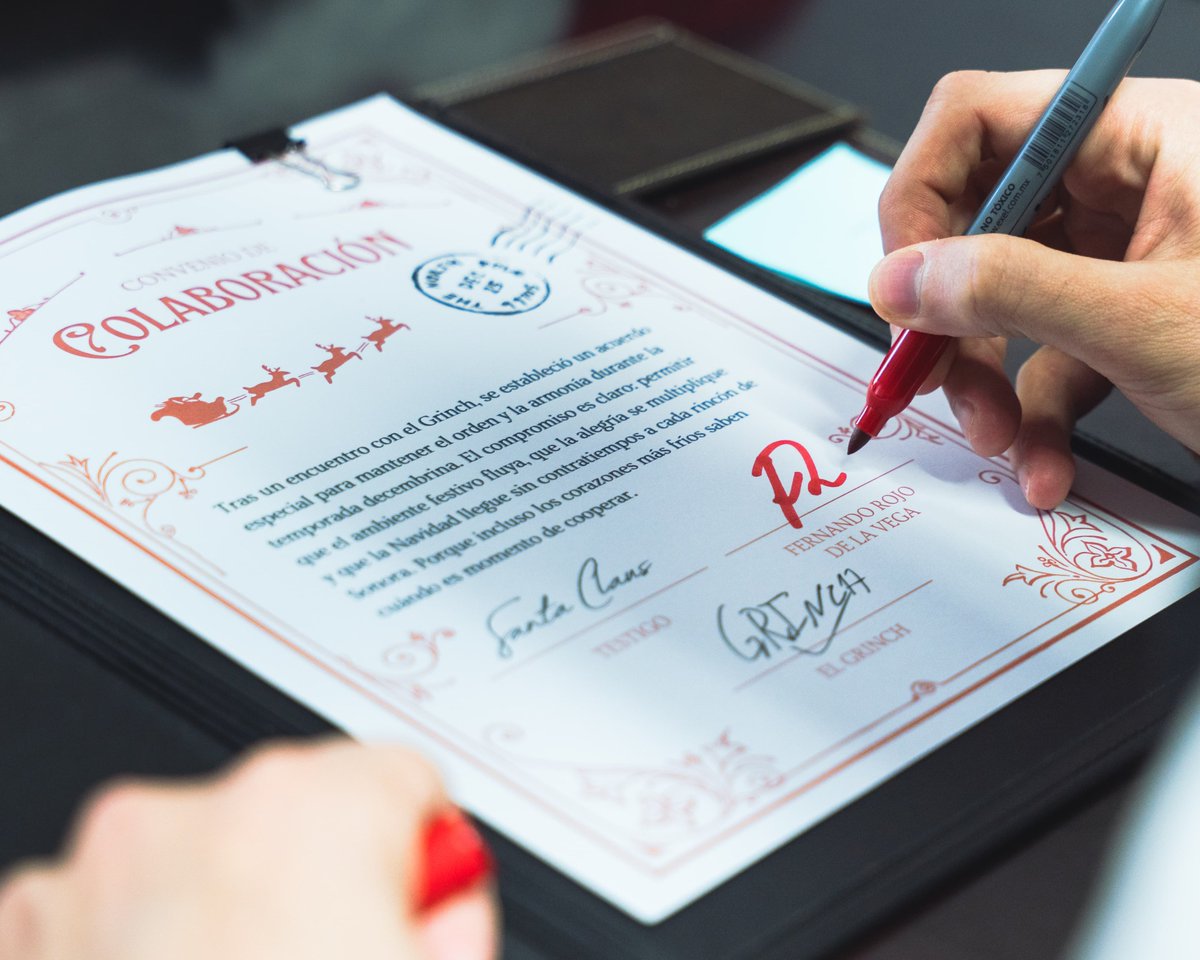 CONVENIO DE
COLABORACIÓN
Tras un encuentro con el Grinch, se estableció un acuerdo
especial para mantener el orden y la armonia durante la
temporada decembrina. El compromiso es claro- permitir
que el ambiente festivo fluya, que la alegría se multiplique
y que la Navidad llegue sin contratiempos a cada rincón de
Sonora. Porque incluso los corazones más fríos saben
cuándo es momento de cooperar.
FR
FERNANDO ROJO
DE LA VEGA
Santa Claus
TESTIGO
GRINCH
EL GRINCH
NO TÓXICO
www.exel.com.mx